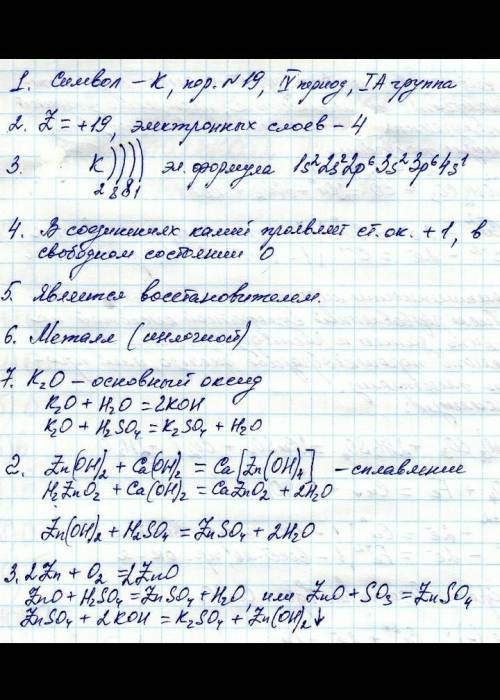 1. Символ – K, пор. №19, IV период, IA группа
2. Z = +19, электронных слоев – 4
3. K )))) эл. формула 1s²2s²2p⁶3s²3p⁶4s¹
2 8 8 1
4. В соединениях калий проявляет ст. ок. +1, в
свободном состоянии 0
5. Является восстановителем.
6. Металл (щелочной)
7. K₂O – основный оксид
K₂O + H₂O = 2KOH
K₂O + H₂SO₄ = K₂SO₄ + H₂O
2. Zn(OH)₂ + Ca(OH)₂ = Ca[Zn(OH)₄] – сплавление
H₂ZnO₂ + Ca(OH)₂ = CaZnO₂ + 2H₂O
Zn(OH)₂ + H₂SO₄ = ZnSO₄ + 2H₂O
3. 2Zn + O₂ = 2ZnO
ZnO + H₂SO₄ = ZnSO₄ + H₂O, или ZnO + SO₃ = ZnSO₄
ZnSO₄ + 2KOH = K₂SO₄ + Zn(OH)₂↓